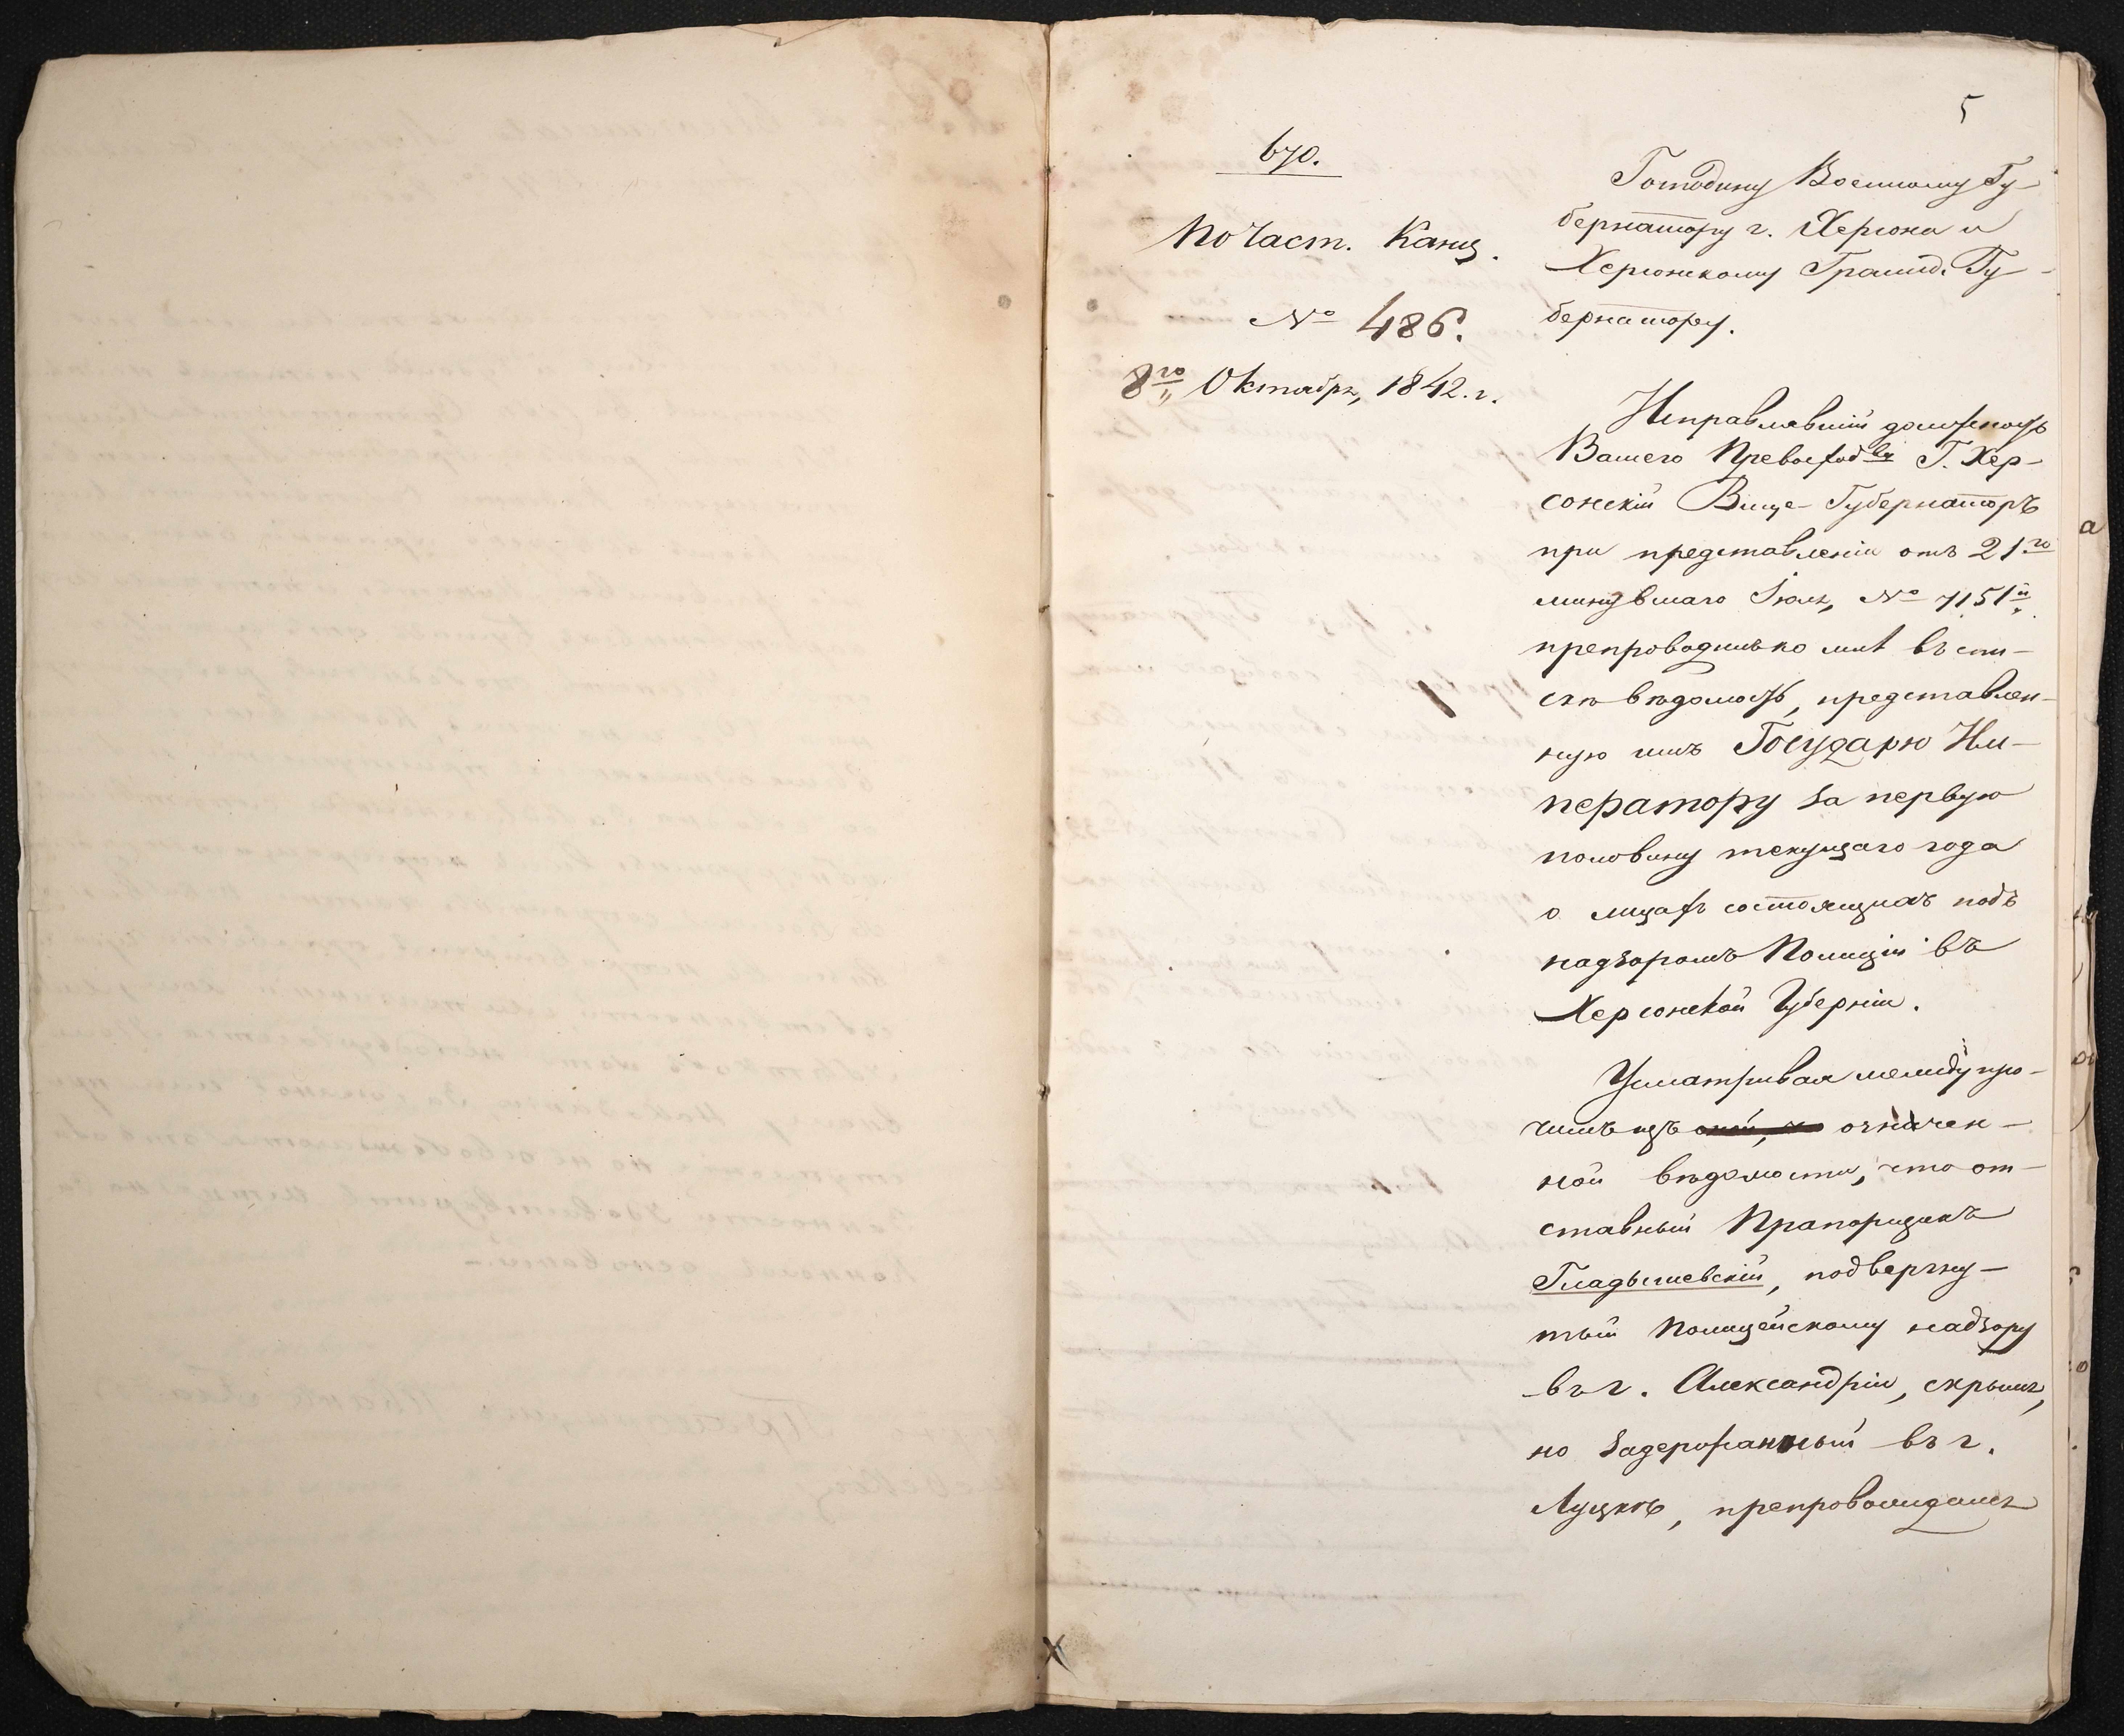 5
670.
По Част. Канц.
№ 486.
8го Октября, 1842. г.
Господину Военному Гу-
бернатору г. Херсона и
Херсонскому Гражд. Гу-
бернатору.
Исправлявшій должность
Вашего Превосход ва Г. Хер-
сонскій Вице-Губернаторъ
при представленіи отъ 21го
минувшаго Іюля, № 7151й,
препроводилъ ко мнѣ въ спи-
скѣ вѣдомость, представлен-
ную имъ Государю Им-
ператору за первую
половину текущаго года
о лицахъ состоящихъ подъ
надзоромъ Полиціи въ
Херсонской Губерніи.
Усматривая между про-
чимъ изъ означен-
ной вѣдомости, что от-
ставный Прапорщикъ
Гладышевскій, подвергну-
тый Полицейскому надзору
въ г. Александріи, скрылся,
но задержанный въ г.
Луцкѣ, препровождался